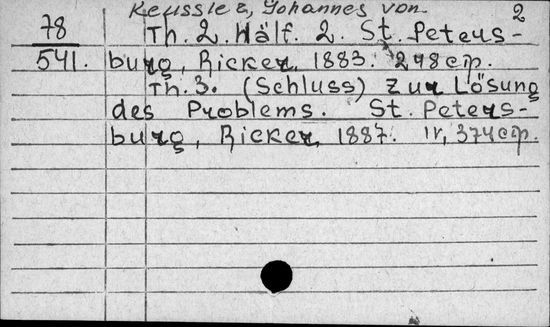 Keussler, Johannes von 2
78 Th. 2. Hälf. 2. St. Peters-
541. burg, Ricker, 1883. 298 стр.
Th. 3. (Schluss) Zur Lösung
des Problems. St. Peters-
burg, Ricker, 1887. IV, 374 стр.